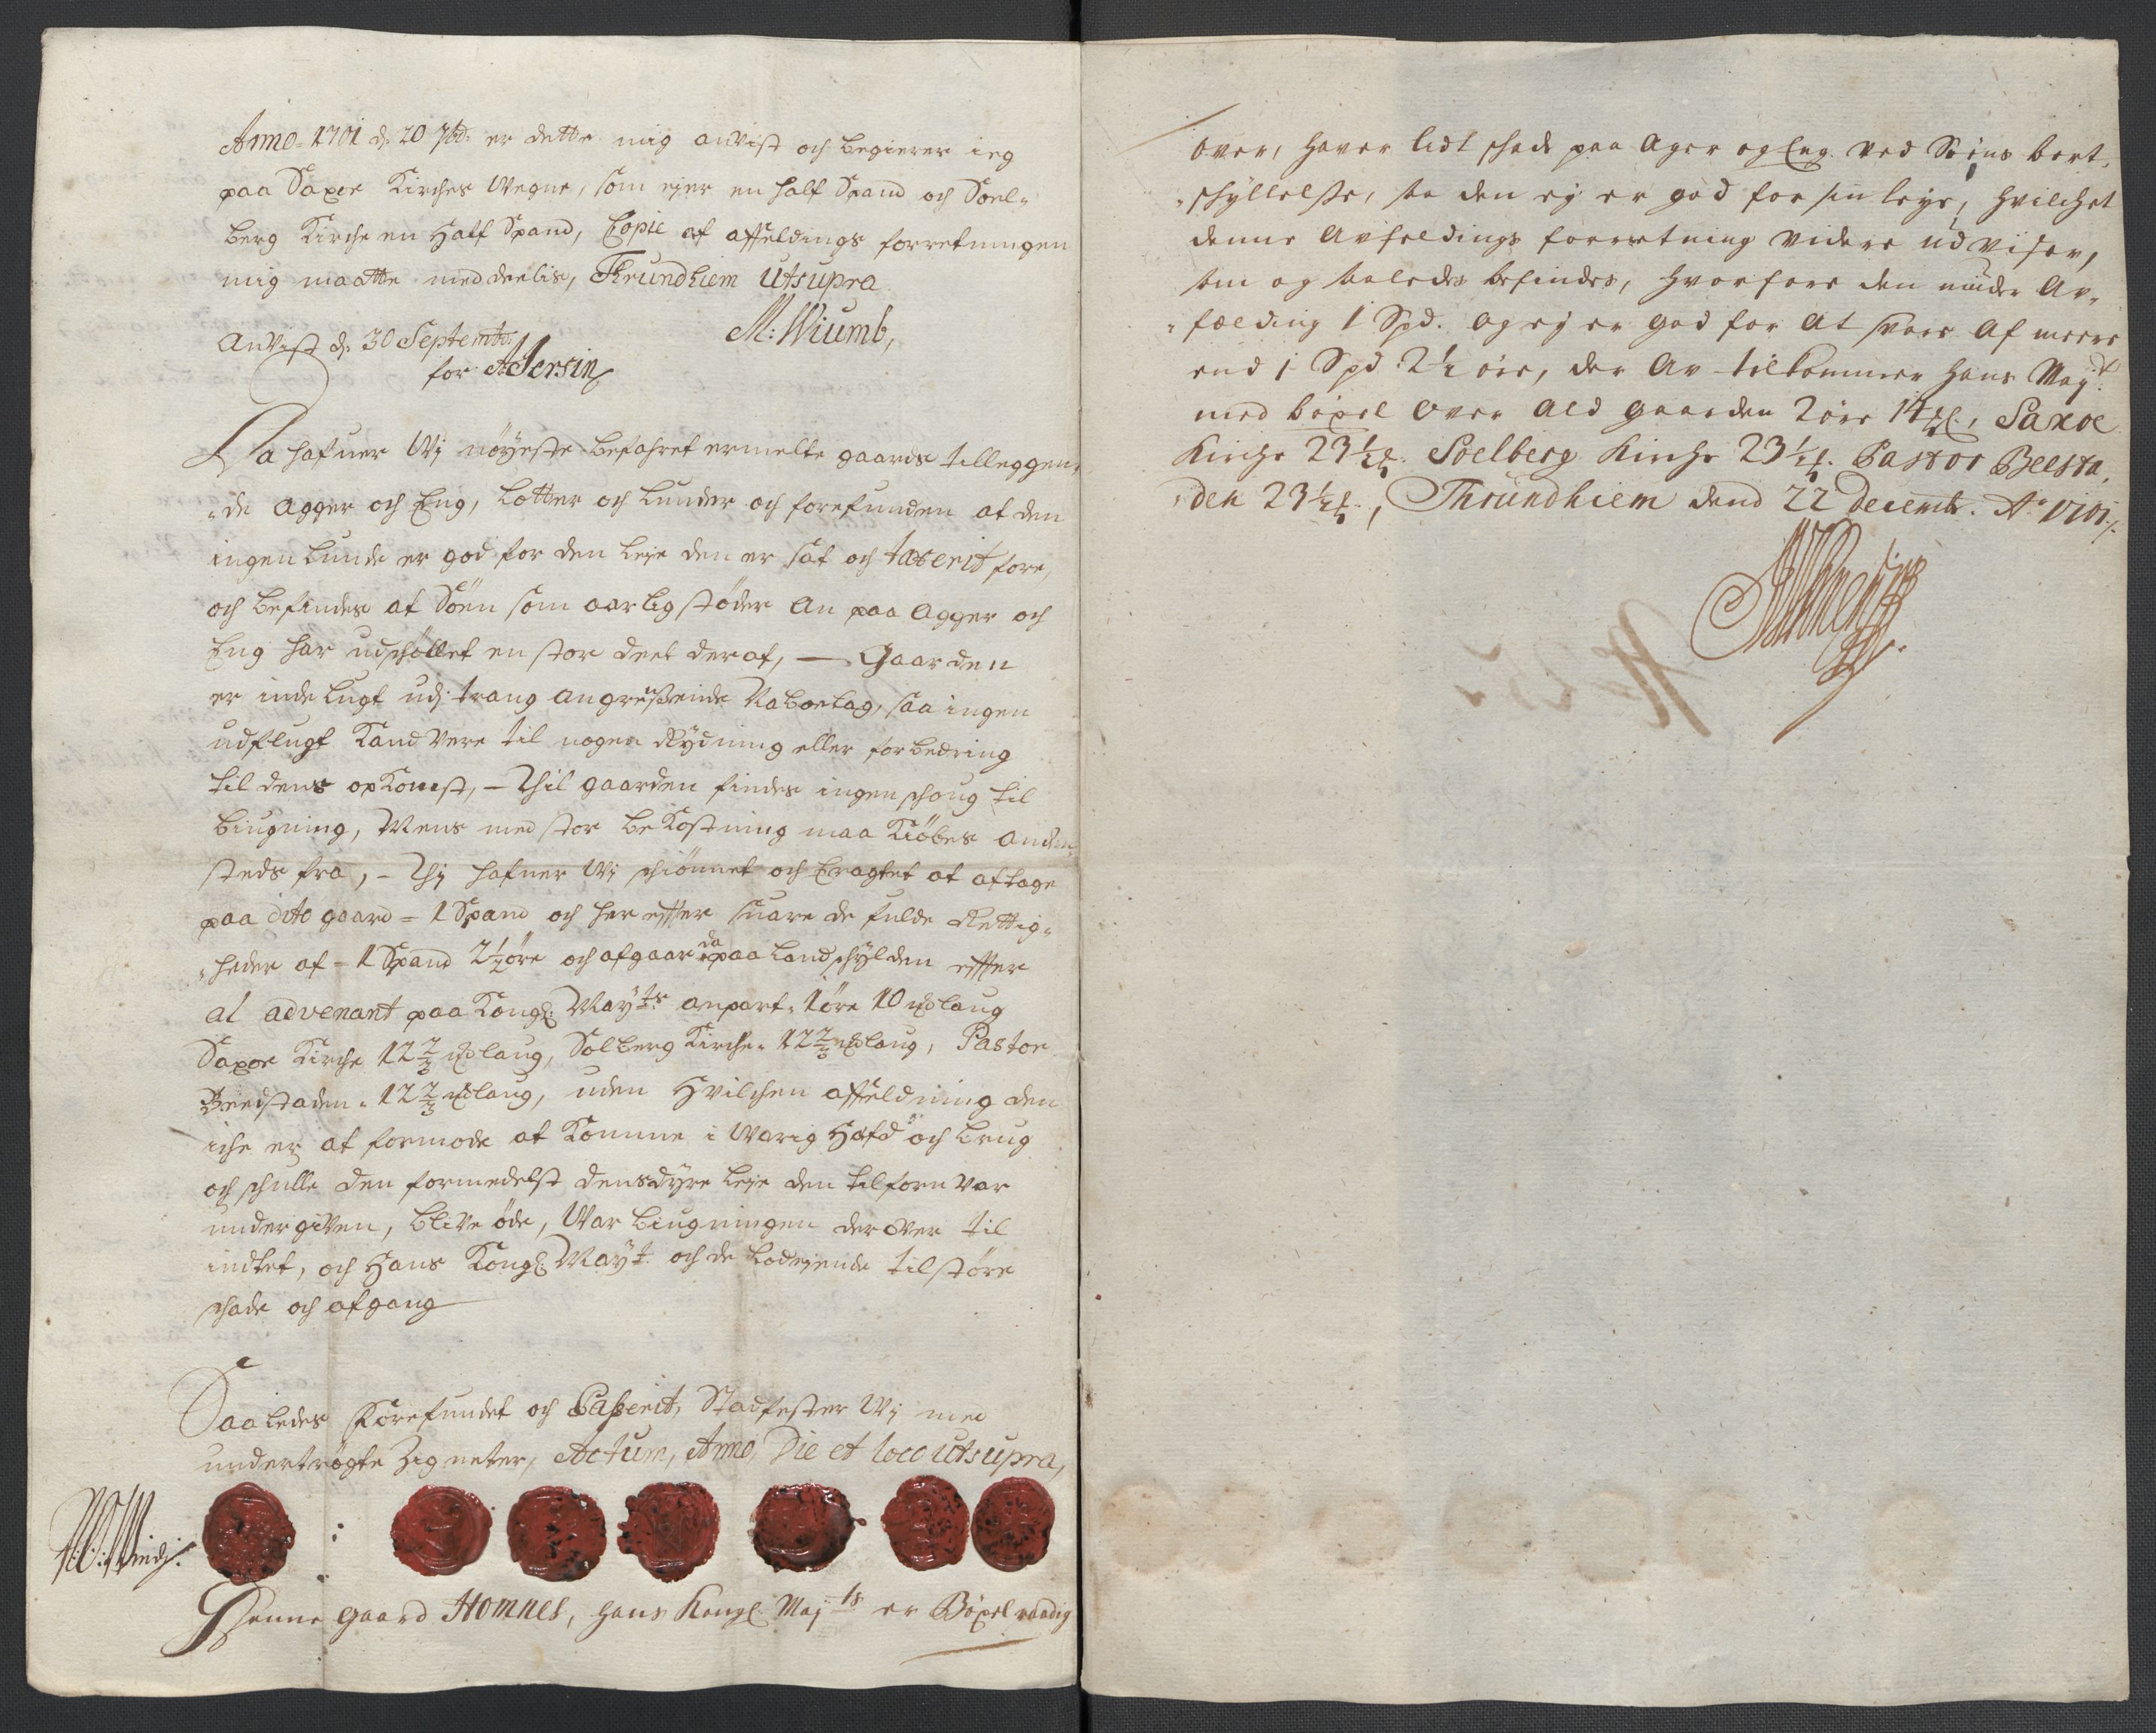 Anno 1701 d: 20 7bd: er dette mig anVist och begierer ieg
paa Saxoe Kirches Vegne, som ejer en half Spand och Soel-
berg Kirche en Half Spand, Copie af affeldings forretningen
mig maatte meddeelis, Thrundhiem Utsupra
M: Wiumb,
AnVist d: 30 Septembr:
for AJersin
Da hafuer Wj nöyeste befahret ermelte gaards tilleggen-
-de Agger och Eng, Lotter och Lunder och forefunden at den
ingenlunde er god for den Leje den er sat och taxerit fore,
och befindes at Söen som aarlig støder An paa Agger och
Eng har udschøllet en stor deel deraf, — Gaarden
er indelugt udj trang angrentzende Naboelag, saa ingen
udflugt Kand Vere til nogen Rÿdning eller forbedring
til dens opKomst, - Thil gaarden findes ingen schoug til
biugning, Mens med stor beKostning maa Kiöbes anden
steds fra, - Thj hafuer Wj schiönnet och Eragtet at aftage
paa dito gaard = 1 Spand och her effter suare de fulde Rettig-
-heder af - 1 Spand 2½ öre och afgaar da paa Landschÿlden effter
al advenant paa Kongl: Maÿts anpart - 1 öre 10 laug
Saxoe Kirche 12 2/3 laug, Solberg Kirche - 12 2/3 laug, Pastor
Beedstaden - 12 2/3 laug, uden Hvilchen affeldning den
iche er at formode at Komme i Warig Hafd och brug
och schulle den formedelst dens dÿre Leje den tilforn Var
undergiVen, bliVe øde, War biugningen der over til
indtet, och Hans Kongl: Maÿt: och de Lodejende til störe
schade och afgang
Saaledes Forefundet och Passerit, Stadfester Wj med
undertrögte Zigneter, Actum, Anno, Die et loco utsupra,
Denne gaard Homnes, hans Kongl: Maj ts er Böxel raadig
over, haver lidt schade paa Ager og Eng ved Søens bort-
-schyllelsse, saa den ej er god for sin leye, hvilchet
denne Avfældings forretning videre udviser,
som og saaledes befindes, hvorfore den under Av-
-fælding 1 Spd. og ej er god for at svare af meere
end 1 Spd 2½ öre, der Av tilkommer hans Mayt:
med böxel over ald gaarden 2 öre 14 , Saxoe
Kirche 23⅓ . Soelberg Kirche 23⅓ . Pastor Beesta-
-den 23⅓ , Thrundhiem dend 22 Decembr. Ao 1701 /.